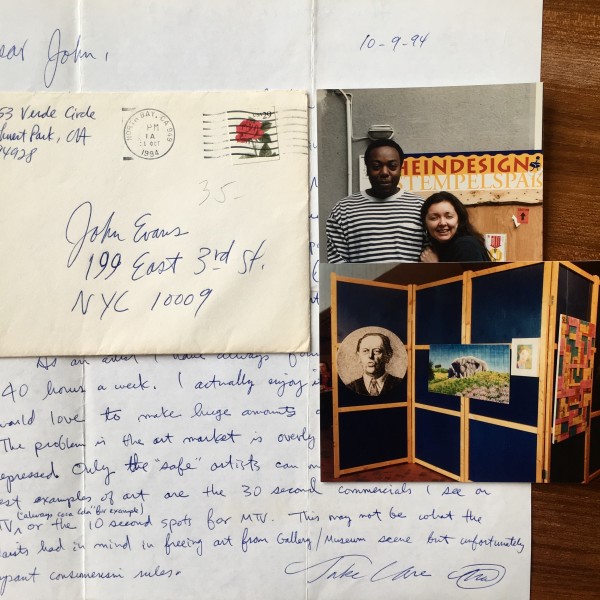 ear John,
10-9-94
53 Verde Circle
hnert Park, CA
94928
NORTH BAY, CA 949
PM
1A
OCT
1994
USA 29
35-
John Evans
199 East 3rd St.
NYC 10009
HEINDESIGN
TEMPELSPAR
As an artist I have always
40 hours a week. I actually enjoy
would love to make huge amounts
The problem is the art market is overly
epressed. Only the "safe" artists can
est examples of art are the 30 second commercials I see on
("always coca cola" for example)
TV, or the 10 second spots for MTV. This may not be what the
had in mind in freeing art from Gallery/Museum scene but unfortunately
consumerism rules.
Take Care